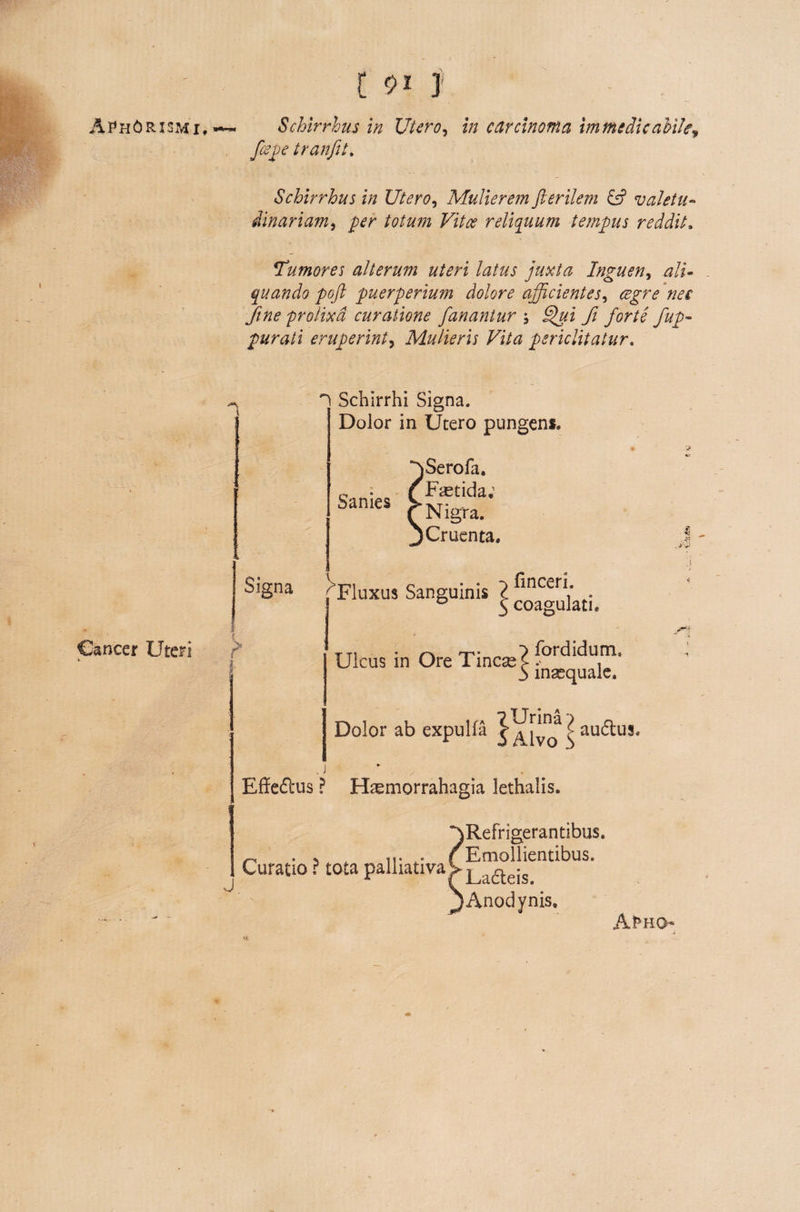 [ 91 ]
APHÓRISMI. — Schirrhus in Utero, in carcinoma immedicabile,
ſæpe tranſit.
Schirrhus in Utero, Mulierem ſterilem & valetu-
dinariam, per totum Vitæ reliquum tempus reddit.
Tumores alterum uteri latus juxta Inguen, ali-
quando poſt puerperium dolore afficientes, ægre nec
ſine prolixâ curatione ſanantur ; Qui ſi forté ſup-
purati eruperint, Mulieris Vita periclitatur.
Schirrhi Signa.
Dolor in Utero pungens.
Sanies
Seroſa.
Fætida.
Nigra.
Cruenta.
Signa
Fluxus Sanguinis
ſinceri.
coagulati.
Cancer Uteri
Ulcus in Ore Tincæ
ſordidum.
inæquale.
Dolor ab expulſâ
Urinâ
Alvo
auctus.
Effectus ? Hæmorrahagia lethalis.
Curatio ? tota palliativa
Refrigerantibus.
Emollientibus.
Lacteis.
Anodynis.
APHO-